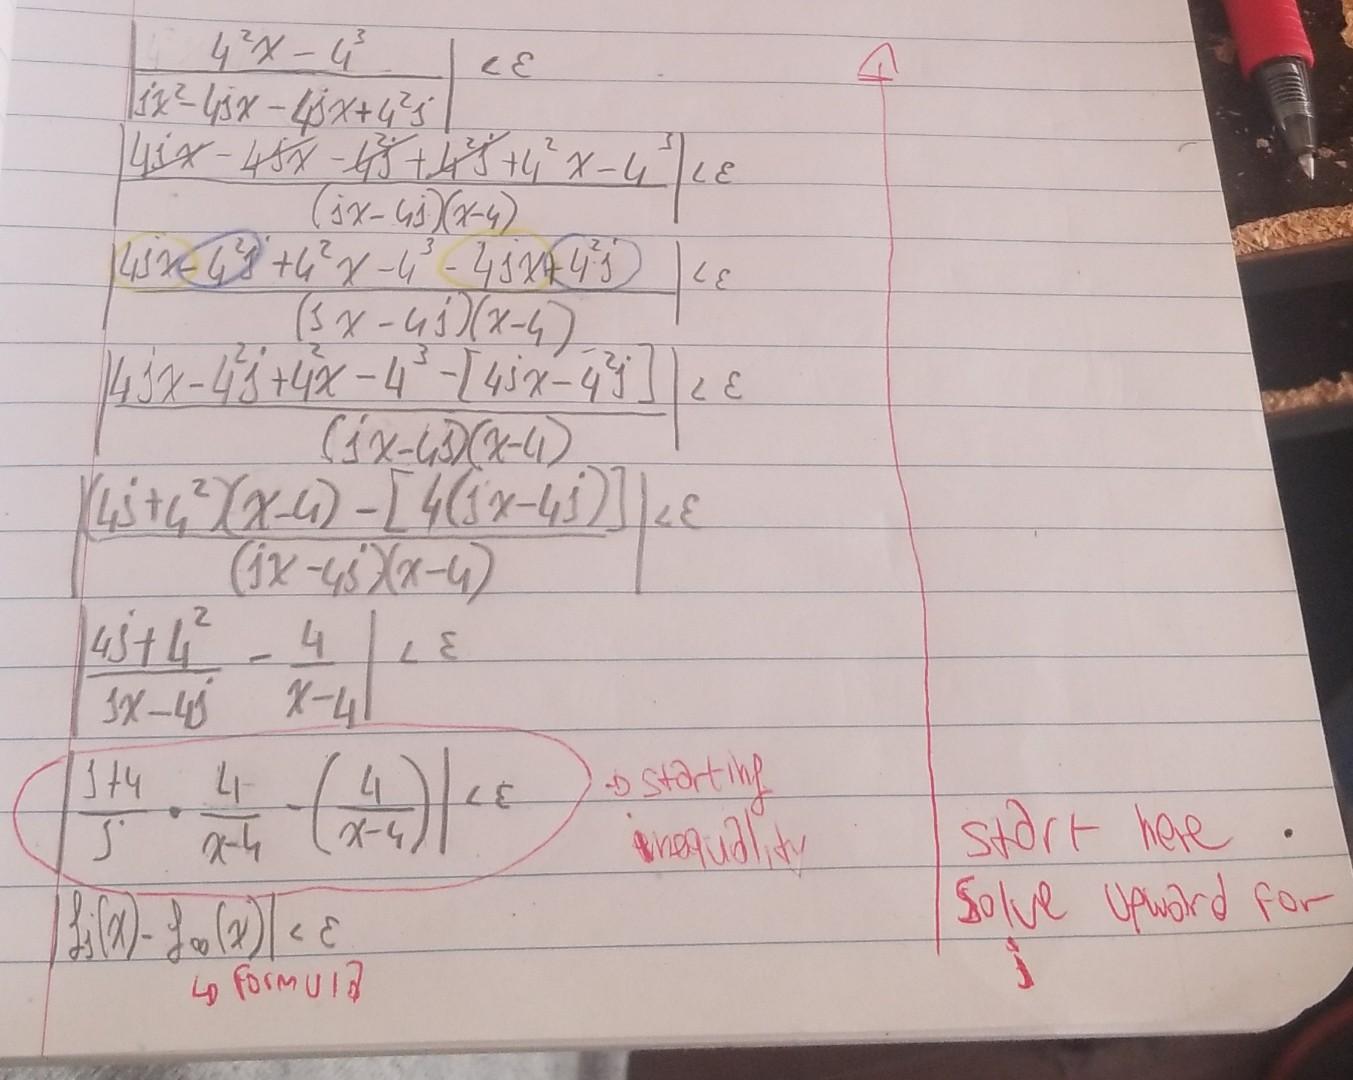 |4²x - 4³ / jx² - 4jx - 4jx + 4²j| < ε
|4jx - 4jx - 4²j + 4²j + 4²x - 4³ / (jx - 4j)(x - 4)| < ε
|4jx - 4²j + 4²x - 4³ - 4jx + 4²j / (jx - 4j)(x - 4)| < ε
|4jx - 4²j + 4²x - 4³ - [4jx - 4²j] / (jx - 4j)(x - 4)| < ε
|(4j + 4²)(x - 4) - [4(jx - 4j)] / (jx - 4j)(x - 4)| < ε
|4j + 4² / jx - 4j - 4 / x - 4| < ε
|j + 4 / j • 4 / x - 4 - (4 / x - 4)| < ε → starting inequality
|fj(x) - f∞(x)| < ε
↳ formula
start here
solve upward for
j